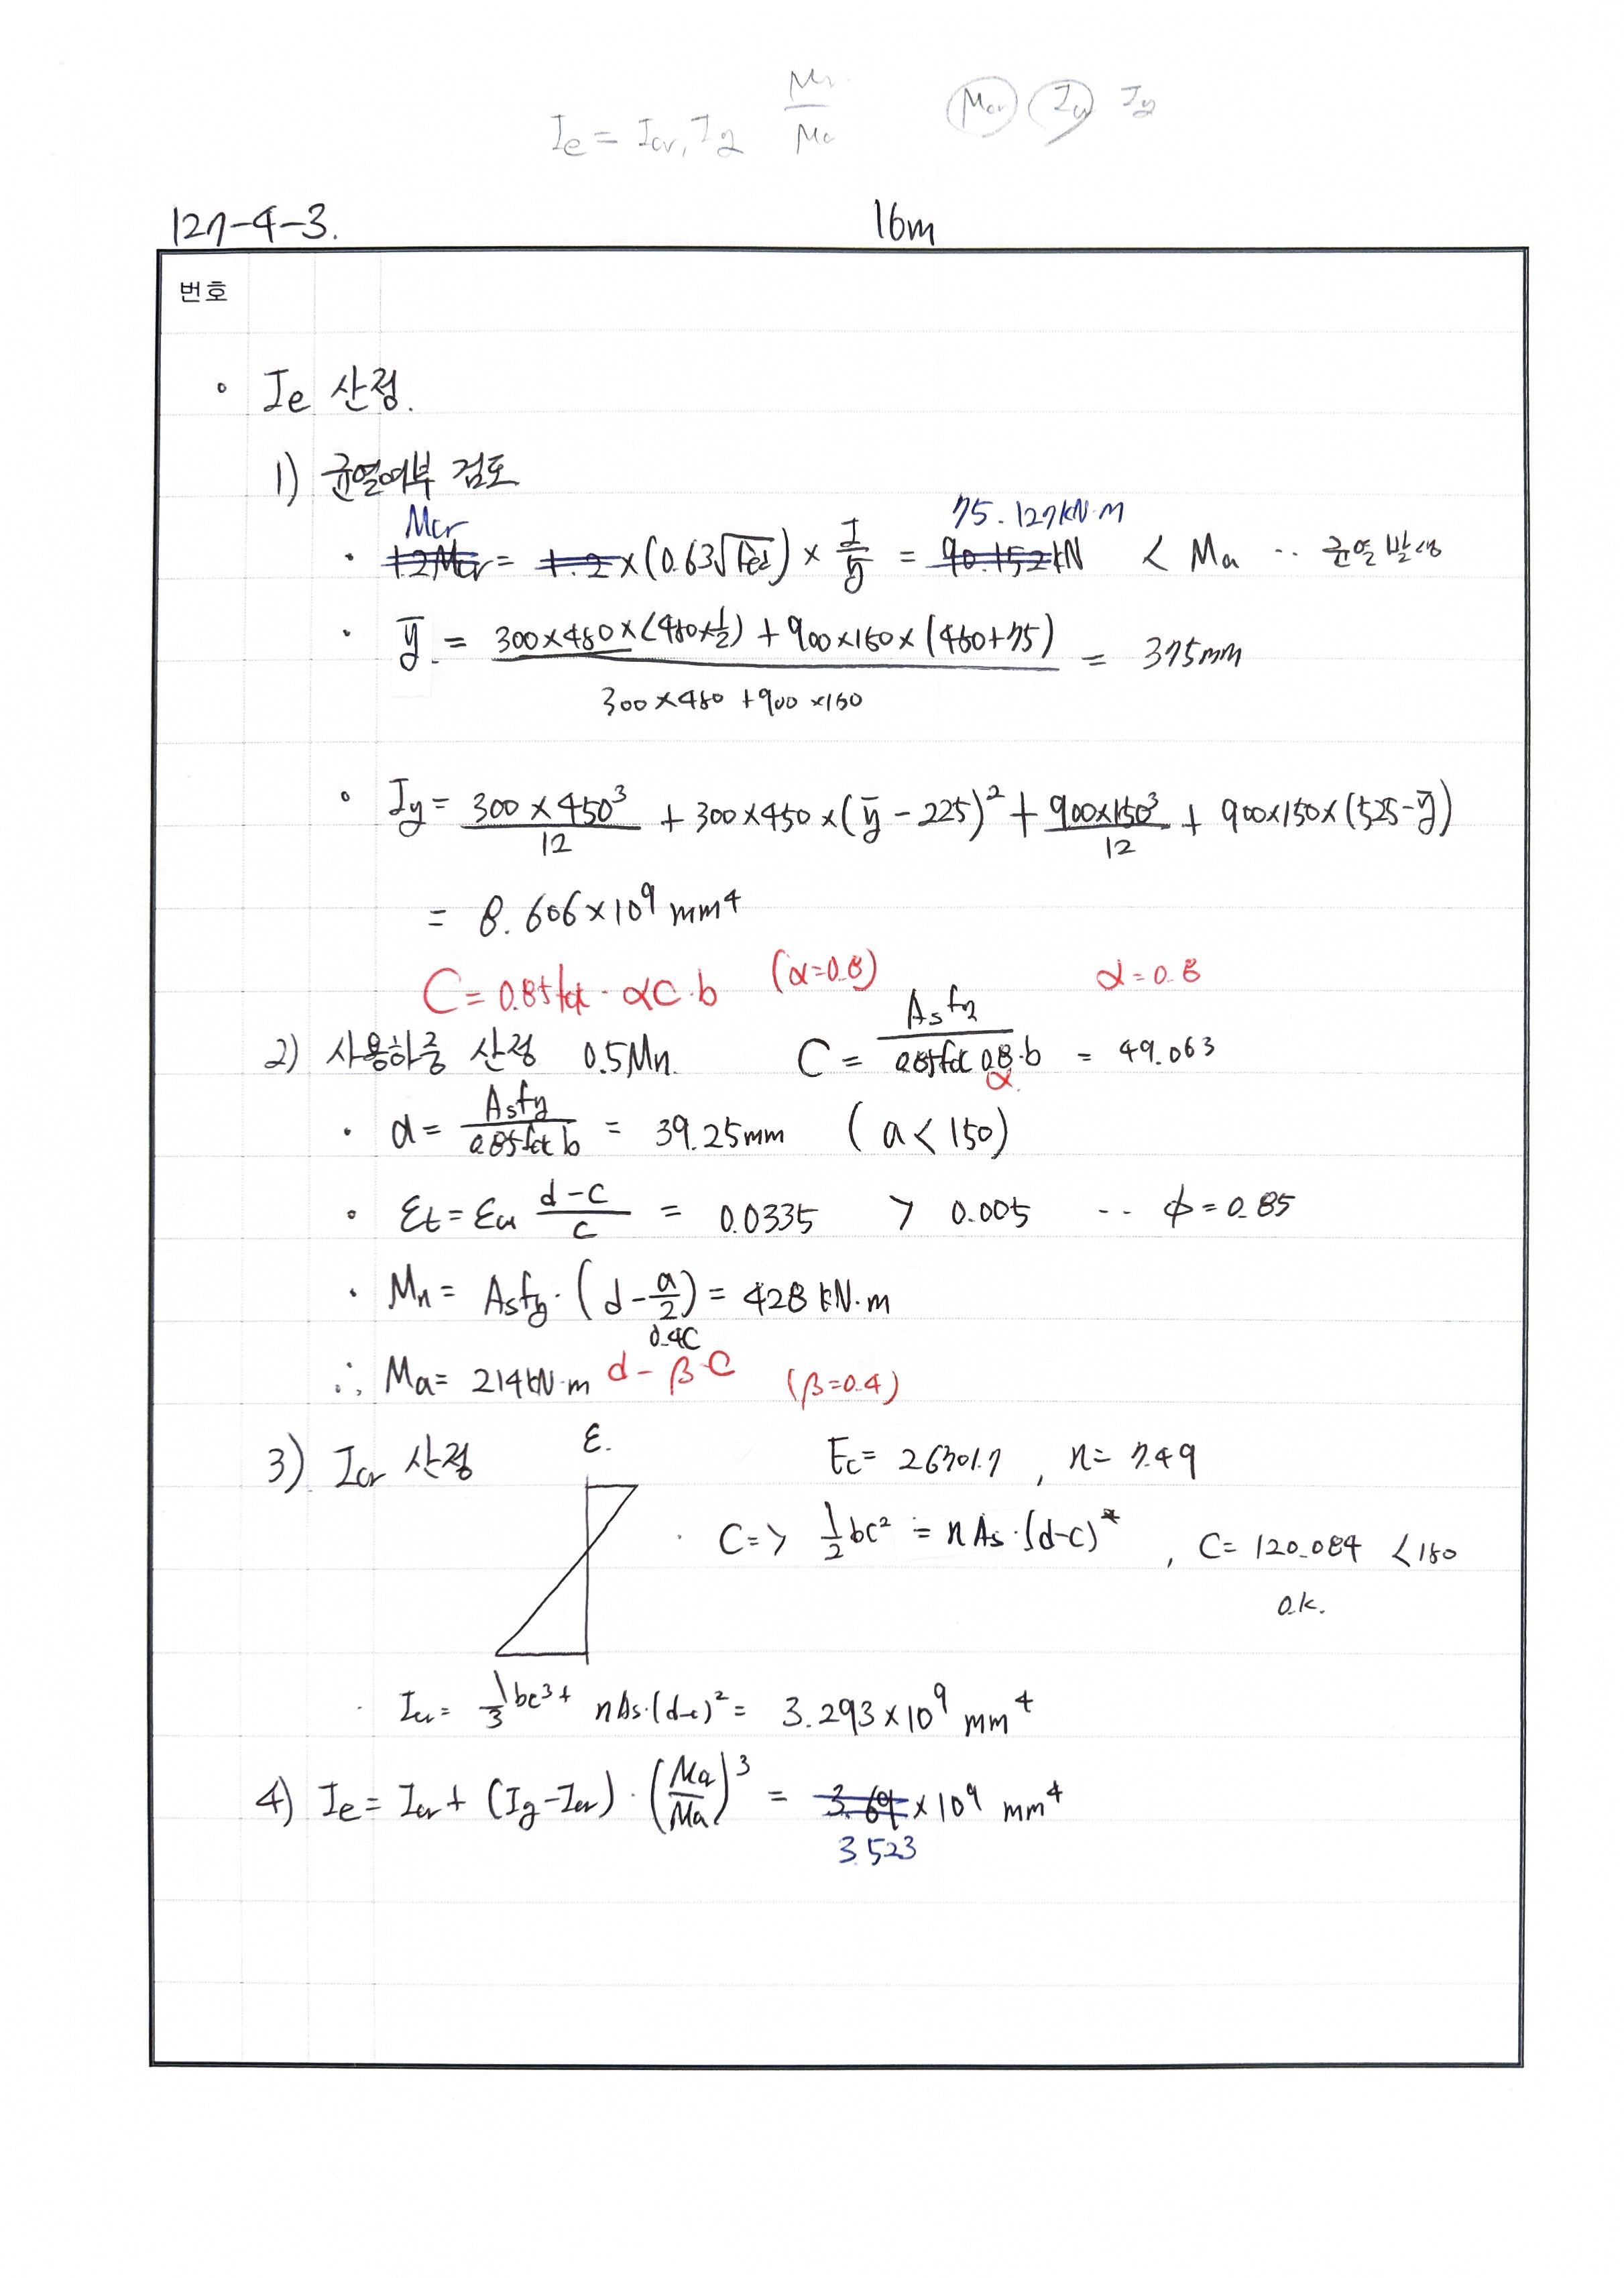 Ie = Icr, Ig Mcr/Ma Mcr Icr Ig
127-4-3. 16m
번호
∘ Ie 산정.
1) 균열여부 검토
Mcr 75.127kN·m
· 1.2Mcr = 1.2×(0.63√fck) × I/ȳ = 90.152kN < Ma ·· 균열 발생
· ȳ = (300×450×(450×1/2) + 900×150×(450+75)) / (300×450 + 900×150) = 375mm
∘ Ig = 300×450³/12 + 300×450×(ȳ-225)² + 900×150³/12 + 900×150×(525-ȳ)
= 8.606×10⁹ mm⁴
C = 0.85fck·αC·b (α=0.8) α=0.8
2) 사용하중 산정 0.5Mn. C = Asfy / 0.85fck 0.8·b = 49.063
α.
· a = Asfy / 0.85fck b = 39.25mm (a<150)
∘ εt = εcu (d-c)/c = 0.0335 > 0.005 ·· ϕ=0.85
· Mn = Asfy·(d-a/2) = 428 kN·m
0.4C
∴ Ma = 214kN·m d-β·C (β=0.4)
3) Icr 산정 ε. Ec = 26701.7 , n = 7.49
· C => 1/2bc² = nAs·(d-c) * , C = 120.084 <150
O.K.
· Icr = 1/3bc³ + nAs·(d-c)² = 3.293×10⁹ mm⁴
4) Ie = Icr + (Ig-Icr)·(Mcr/Ma)³ = 3.69×10⁹ mm⁴
3.523